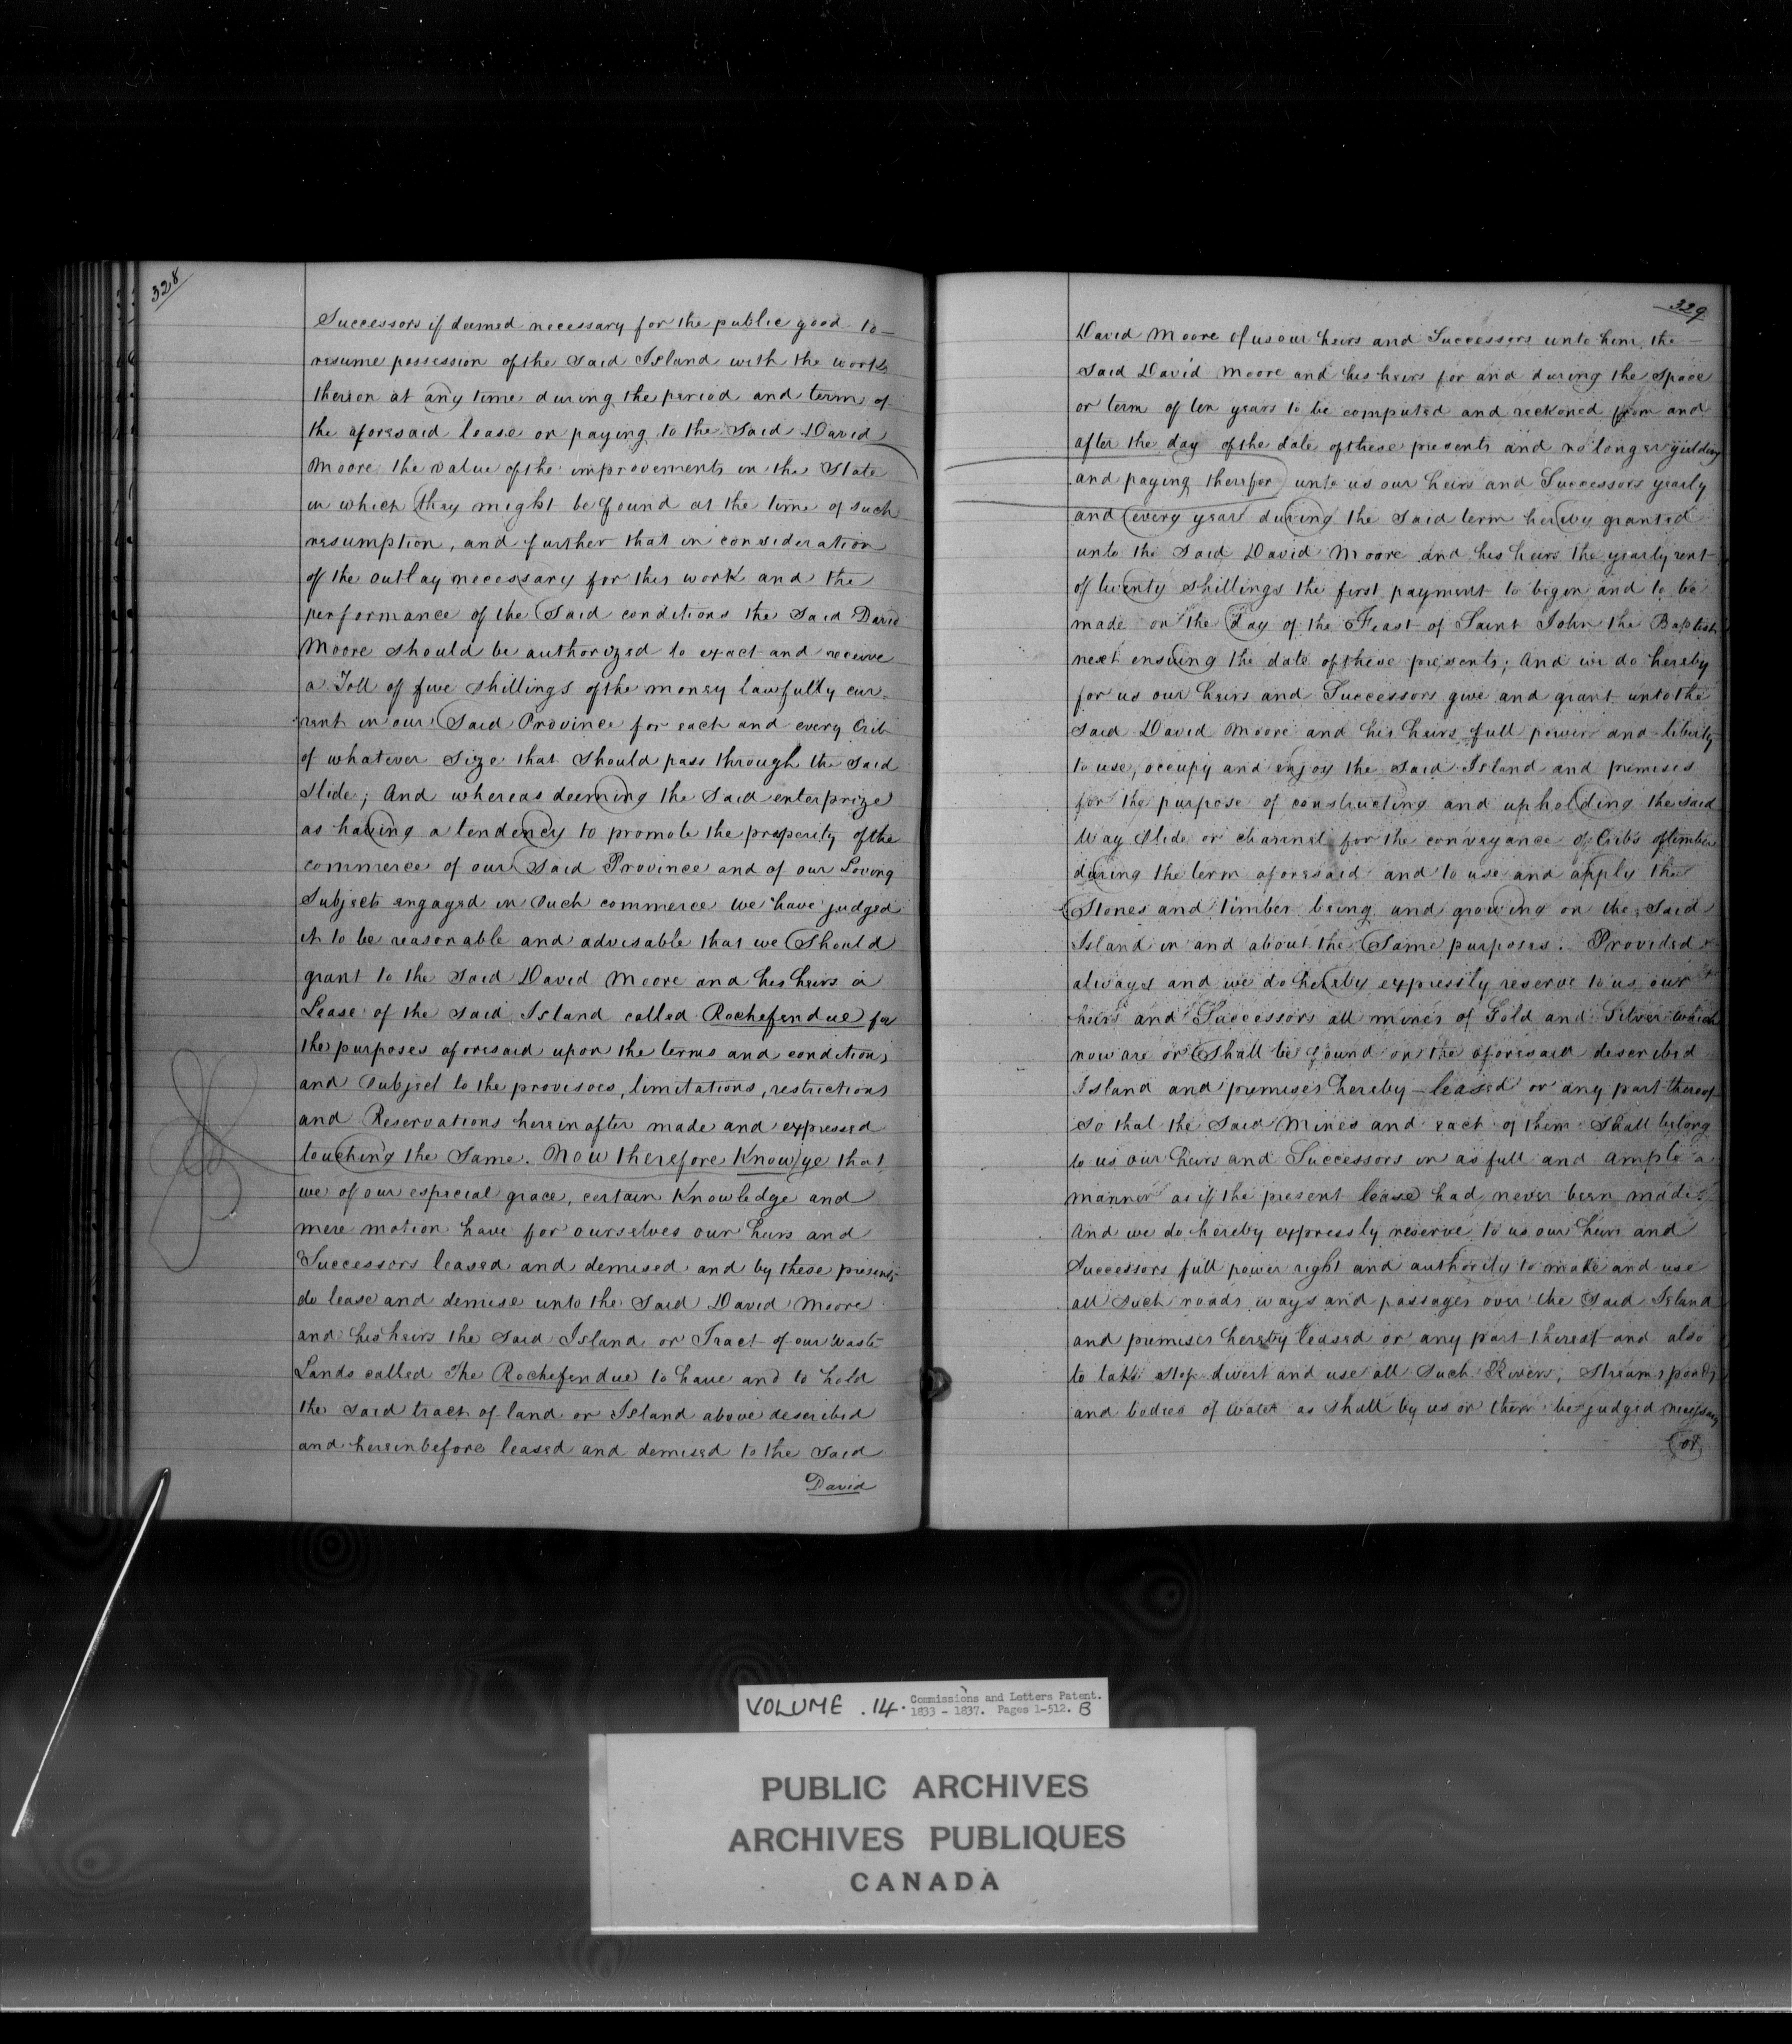 328
Successors if deemed necessary for the public good to
resume possession of the Said Island with the works
thereon at any time during the period and term of
the aforesaid lease on paying to the Said David
Moore the value of the improvements in the State
in which they might be found at the time of such
resumption, and further that in consideration
of the outlay necessary for this work and the
performance of the Said conditions the Said David
Moore should be authorized to exact and receive
a Toll of five shillings of the money lawfully cur-
rent in our Said Province for each and every Crib
of whatever Size that should pass through the said
Slide; And whereas deeming the Said enterprize
as having a tendency to promote the prosperity of the
commerce of our Said Province and of our Loving
Subjects engaged in Such commerce we have judged
it to be reasonable and advisable that we Should
grant to the Said David Moore and his heirs a
Lease of the said Island called Rochefendue for
the purposes aforesaid upon the terms and conditions
and Subject to the provisoes, limitations, restrictions
and Reservations hereinafter made and expressed
touching the Same. Now therefore Know ye that
we of our especial grace, certain Knowledge and
mere motion have for ourselves our heirs and
Successors leased and demised and by these presents
do lease and demise unto the Said David Moore
and his heirs the Said Island or Tract of our Waste
Lands called The Rochefendue to have and to hold
the Said tract of land or Island above described
and hereinbefore leased and demised to the Said
David
329
David Moore of us our heirs and Successors unto him the
Said David Moore and his heirs for and during the Space
or term of ten years to be computed and reckoned from and
after the day of the date of these presents and no longer yielding
and paying therefor unto us our heirs and Successors yearly
and every year during the Said term hereby granted
unto the Said David Moore and his heirs the yearly rent
of twenty shillings the first payment to begin and to be
made on the Day of the Feast of Saint John the Baptist
next ensuing the date of these presents; And we do hereby
for us our heirs and Successors give and grant unto the
Said David Moore and his heirs full power and liberty
to use, occupy and enjoy the Said Island and premises
for the purpose of constructing and upholding the said
Way Slide or channel for the conveyance of Cribs of timber
during the term aforesaid and to use and apply the
Stones and timber being and growing on the Said
Island in and about the Same purposes. Provided
always and we do hereby expressly reserve to us our
heirs and Successors all mines of Gold and Silver which
now are or Shall be found on the aforesaid described
Island and premises hereby leased or any part thereof
So that the Said Mines and each of them Shall belong
to us our heirs and Successors in as full and ample a
manner as if the present lease had never been made.
And we do hereby expressly reserve to us our heirs and
Successors full power right and authority to make and use
all Such roads ways and passages over the Said Island
and premises hereby leased or any part thereof and also
to take stop divert and use all Such Rivers, Streams ponds
and bodies of water as shall by us or them be judged necessary
or
VOLUME . 14 . Commissions and Letters Patent.
1833 - 1837. Pages 1-512. B
PUBLIC ARCHIVES
ARCHIVES PUBLIQUES
CANADA